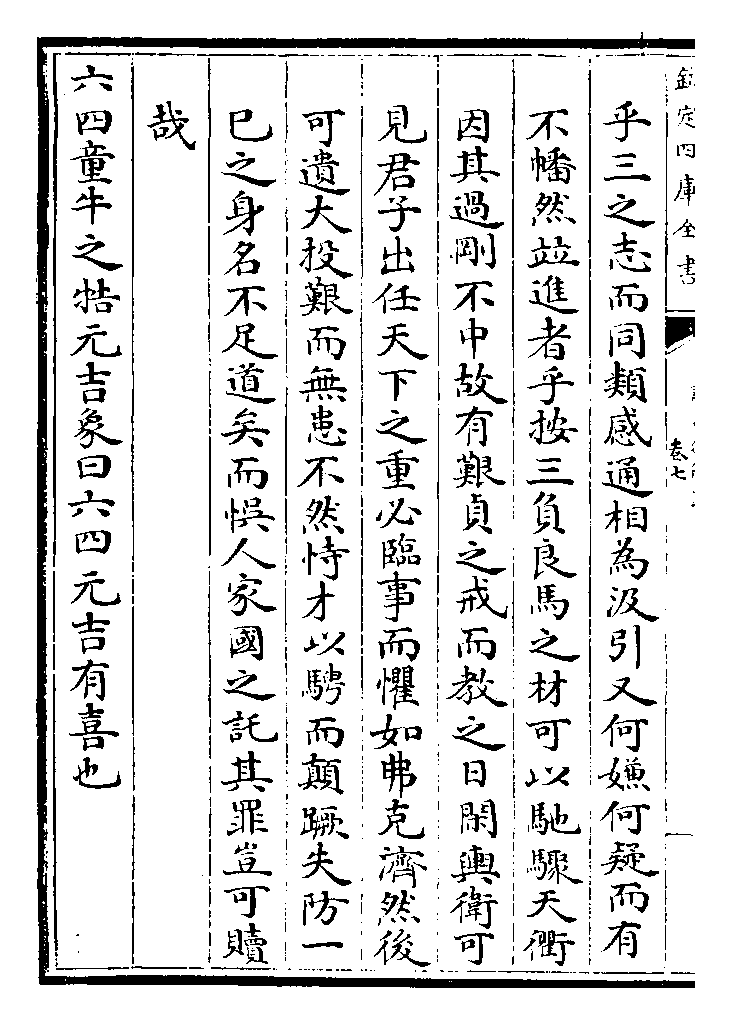 欽定四庫全書
卷七
乎三之志而同類感通相為汲引又何嫌何疑而有
不幡然並進者乎按三負良馬之材可以馳驟天衢
因其過剛不中故有艱貞之戒而教之日閑輿衛可
見君子出任天下之重必臨事而懼如弗克濟然後
可遺大投艱而無患不然恃才以騁而顛蹶失防一
已之身名不足道矣而悞人家國之託其罪豈可贖
哉
六四童牛之牿元吉象曰六四元吉有喜也